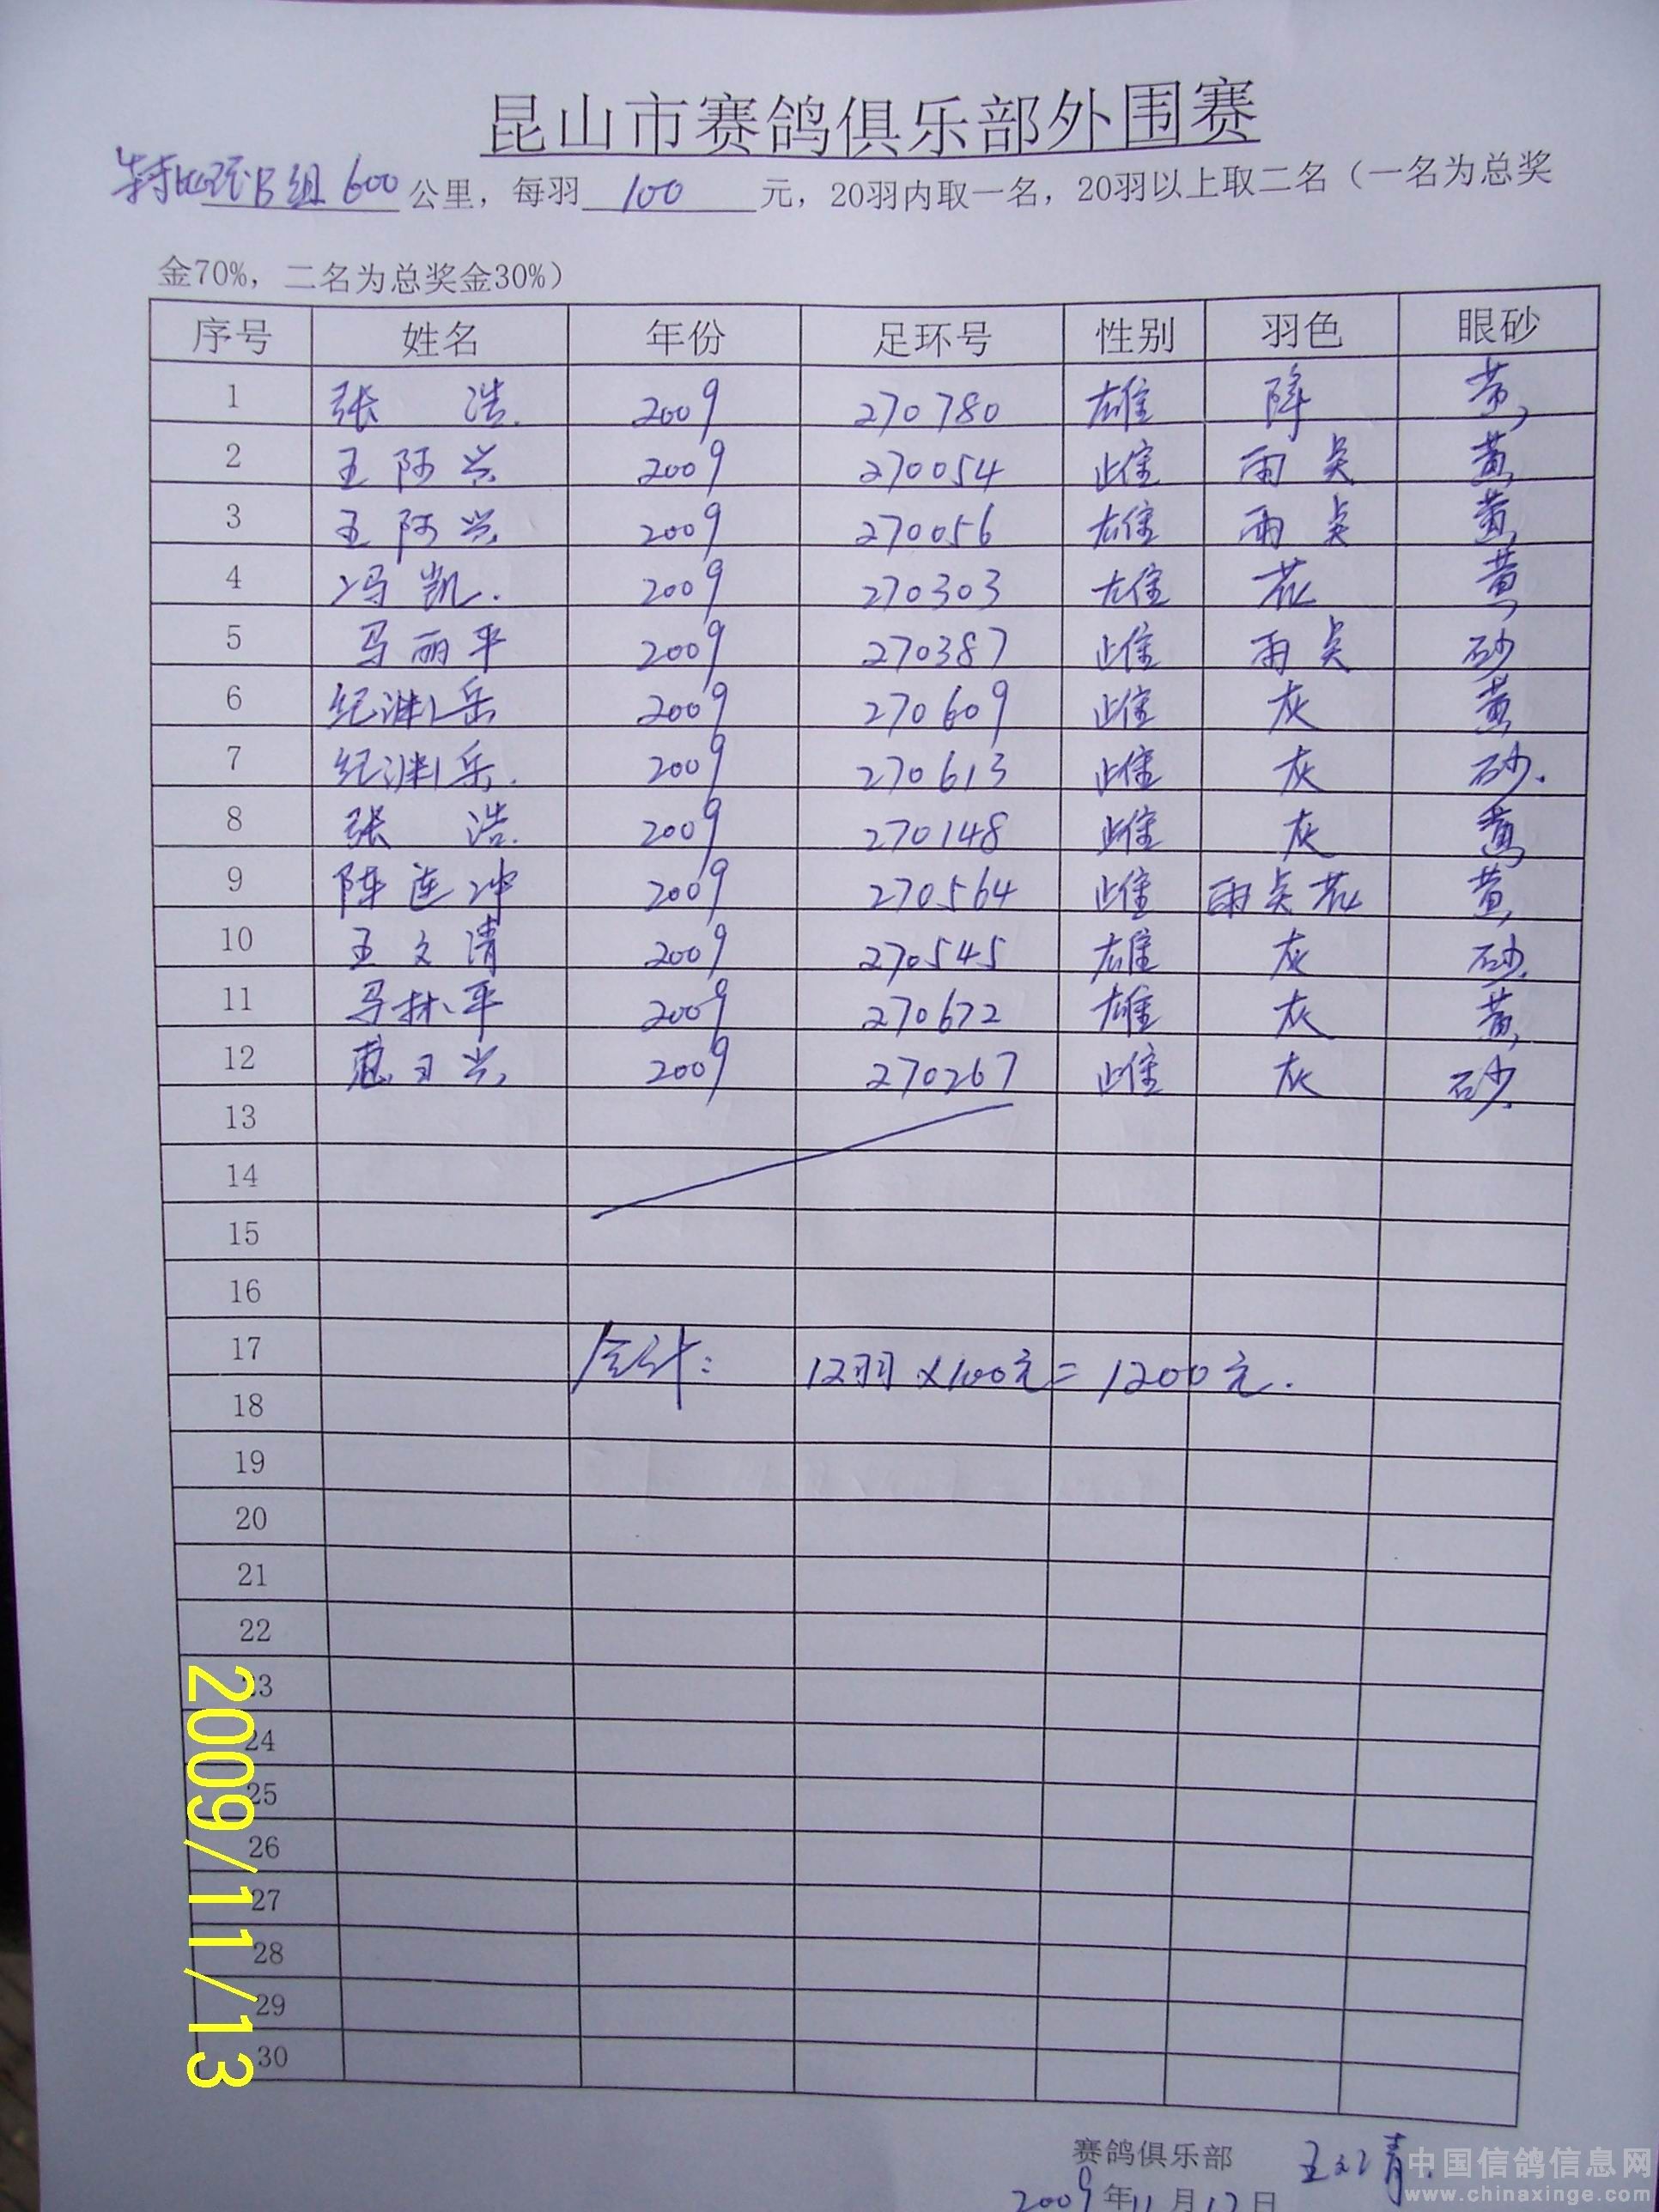 昆山市赛鸽俱乐部外围赛
特比环B组 600 公里，每羽 100 元，20羽内取一名，20羽以上取二名（一名为总奖
金70%，二名为总奖金30%）
序号 姓名 年份 足环号 性别 羽色 眼砂
1 张 浩. 2009 270780 雄 降 黄
2 王阿兴 2009 270054 雌 雨点 黄
3 王阿兴 2009 270056 雄 雨点 黄
4 冯凯. 2009 270303 雄 花 黄
5 马丽平 2009 270387 雌 雨点 砂
6 纪渊岳 2009 270609 雌 灰 黄
7 纪渊岳. 2009 270613 雌 灰 砂.
8 张 浩. 2009 270148 雌 灰 黄
9 陈连冲 2009 270564 雌 雨点花 黄
10 王文清 2009 270545 雄 灰 砂.
11 马林平 2009 270672 雄 灰 黄
12 2009 270267 雌 灰 砂.
13
14
15
16
17 合计： 12羽×100元=1200元.
18
19
20
21
22
23
24
25
26
27
28
29
30
2009/11/13
赛鸽俱乐部 王文清
2009年11月12日
中国信鸽信息网
www.chinaxinge.com